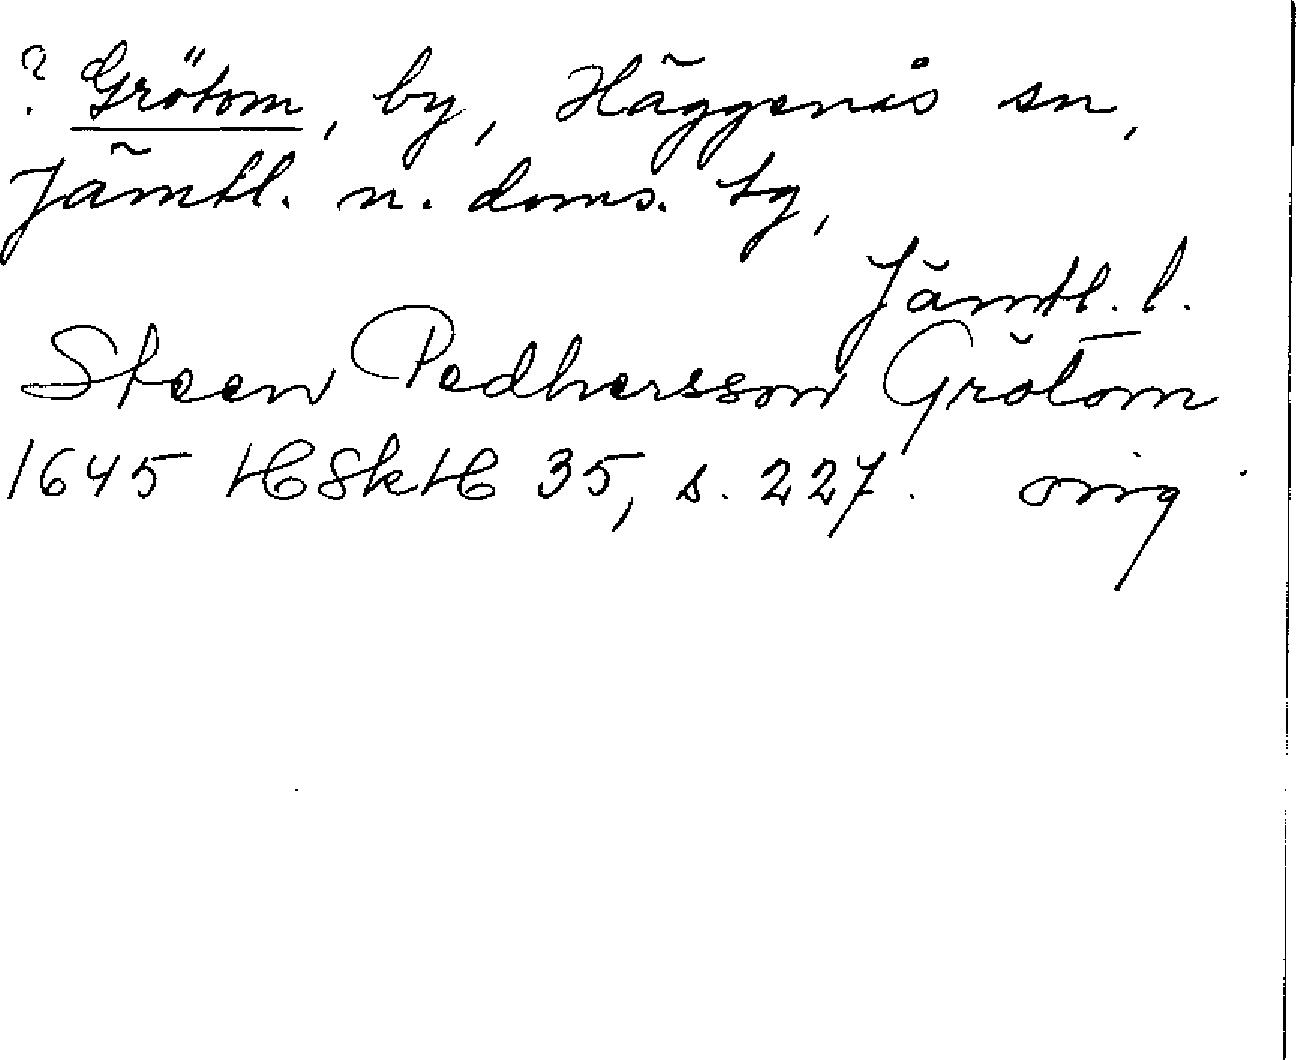 ? Grötom, by, Häggenås sn,
Jämtl. n. doms. tg,
Jämtl. l.
Steen Pedhersson Grötom
1645 HSkH 35, s. 227. orig